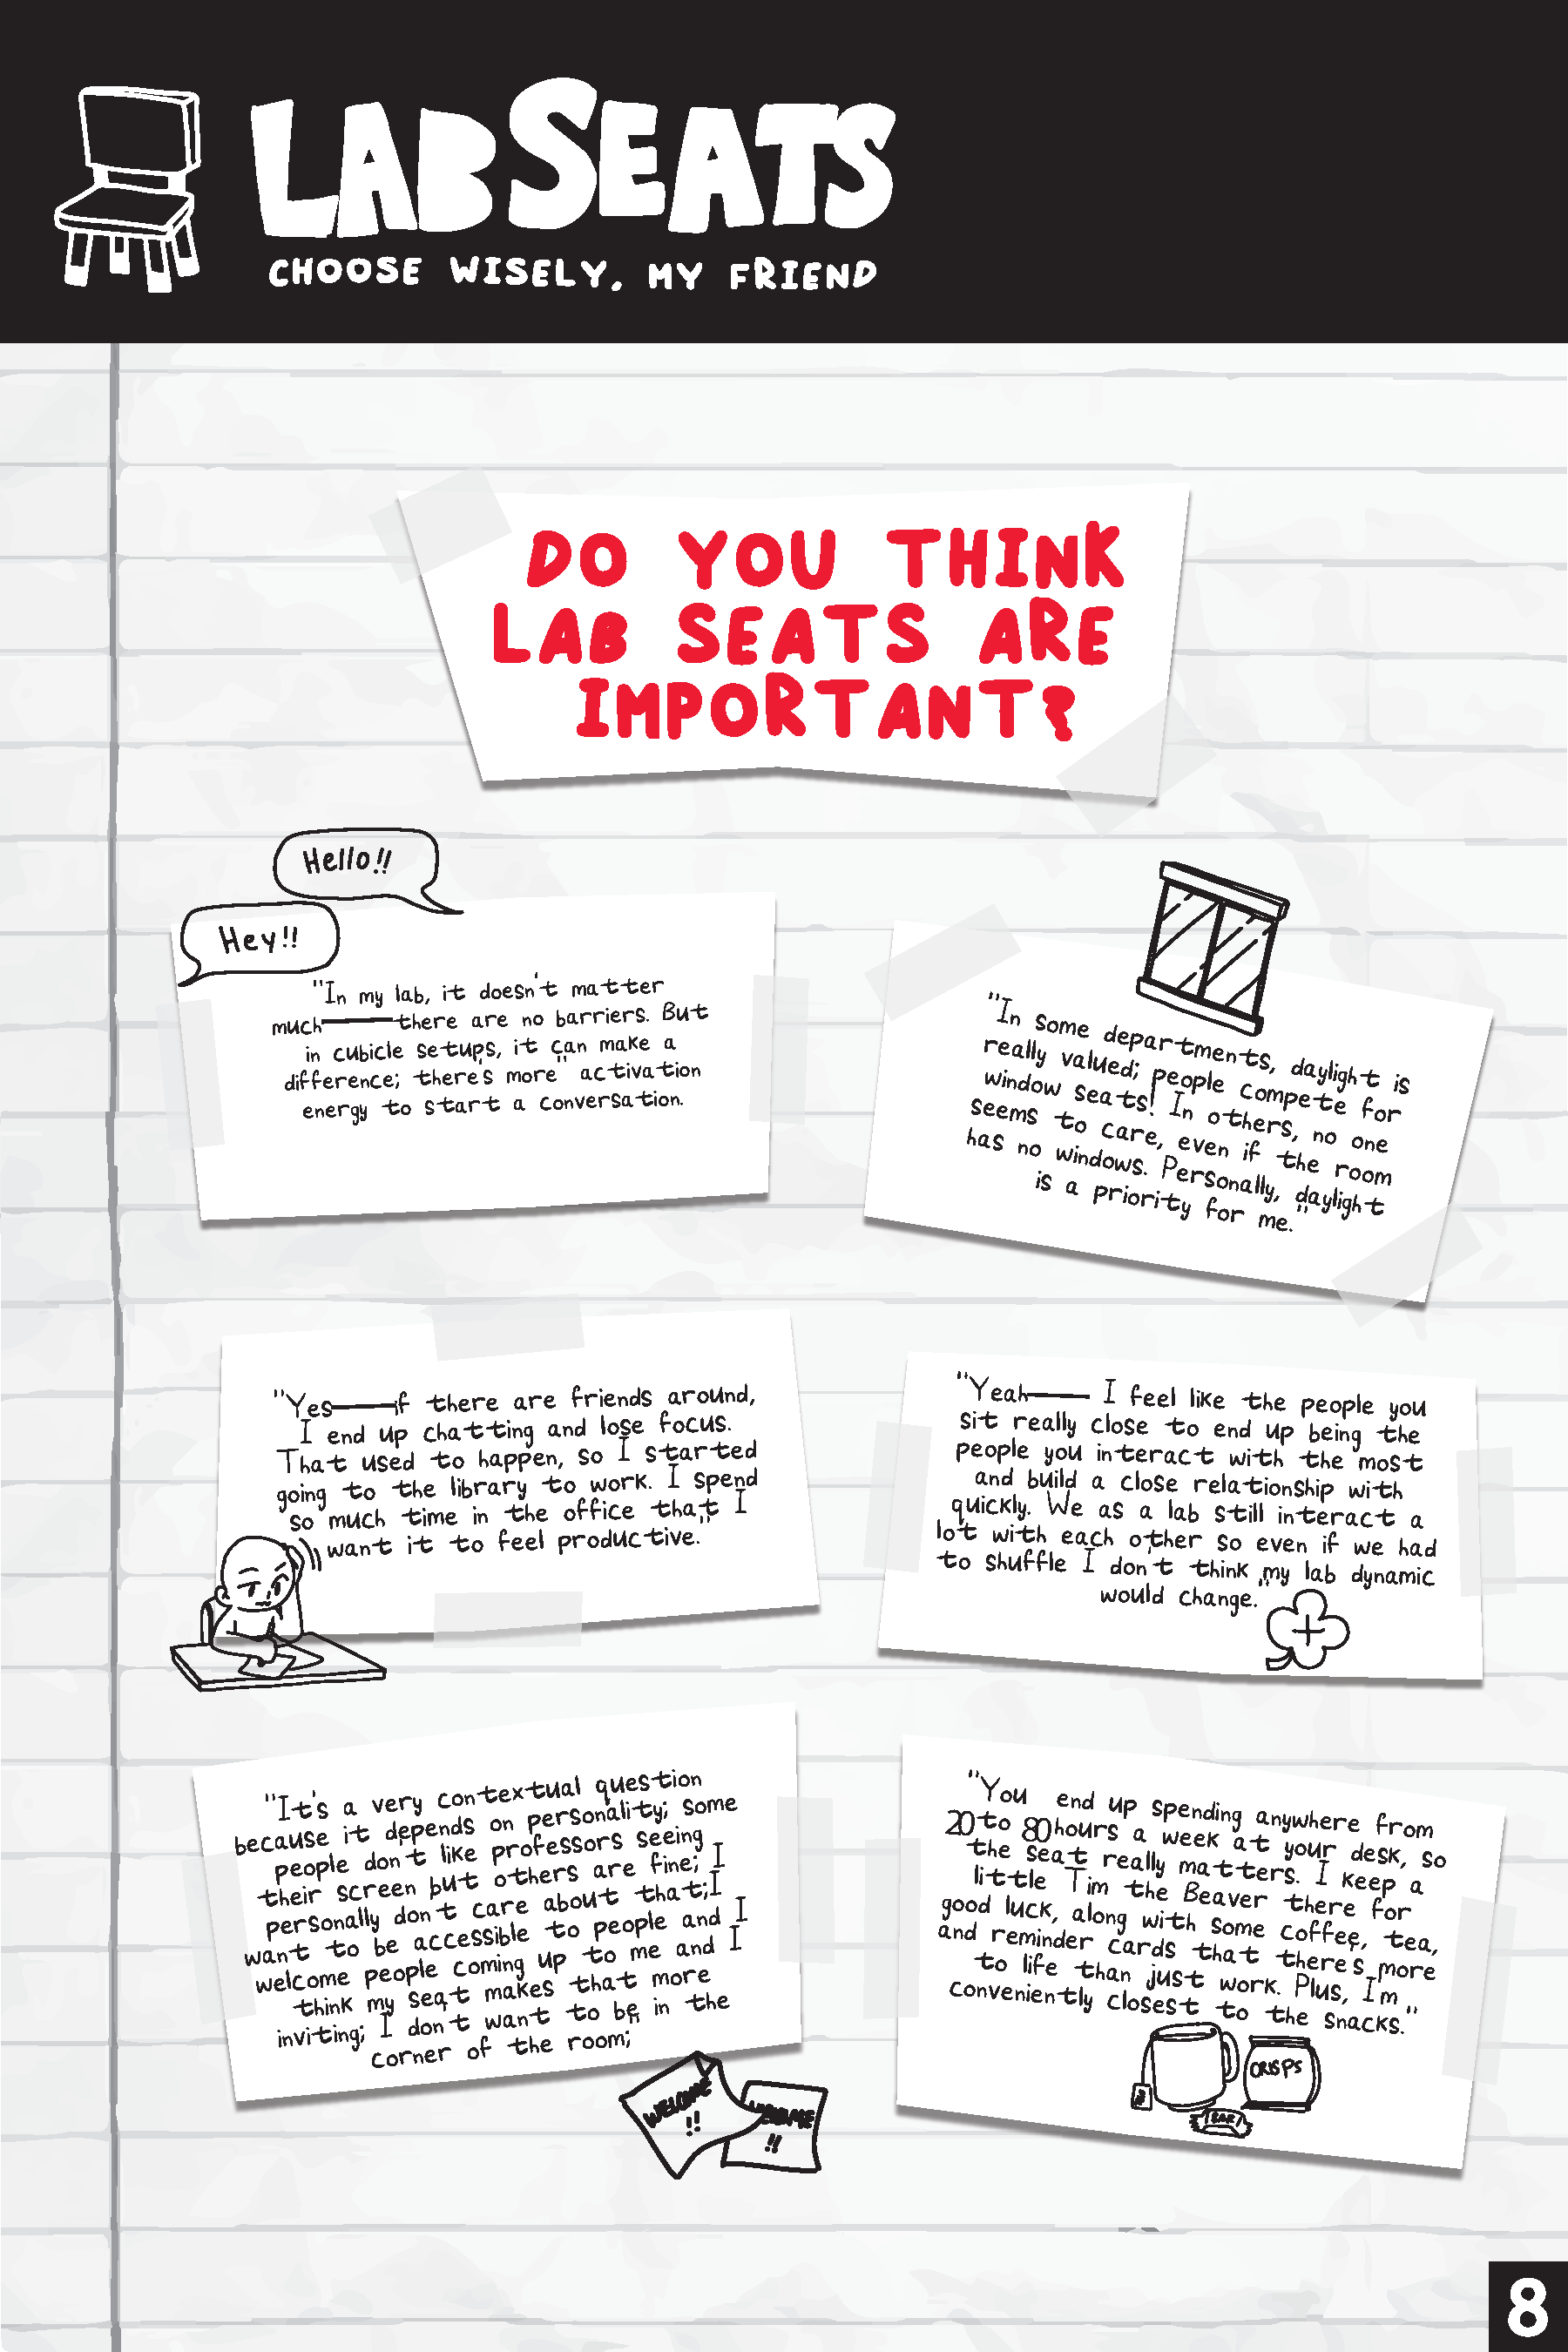 LAB SEATS
CHOOSE WISELY, MY FRIEND
DO YOU THINK
LAB SEATS ARE
IMPORTANT?
Hello!!
Hey!!
"In my lab, it doesn't matter
much——there are no barriers. But
in cubicle setups, it can make a
difference; there's more activation
energy to start a conversation."
"In some departments, daylight is
really valued; people compete for
window seats! In others, no one
seems to care, even if the room
has no windows. Personally, daylight
is a priority for me."
"Yes——if there are friends around,
I end up chatting and lose focus.
That used to happen, so I started
going to the library to work. I spend
so much time in the office that I
want it to feel productive."
"Yeah—— I feel like the people you
sit really close to end up being the
people you interact with the most
and build a close relationship with
quickly. We as a lab still interact a
lot with each other so even if we had
to shuffle I don't think my lab dynamic
would change."
"It's a very contextual question
because it depends on personality; some
people don't like professors seeing
their screen but others are fine; I
personally don't care about that; I
want to be accessible to people and I
welcome people coming up to me and I
think my seat makes that more
inviting; I don't want to be in the
corner of the room;"
WELCOME
!!
WELCOME
!!
"You end up spending anywhere from
20 to 80 hours a week at your desk, so
the seat really matters. I keep a
little Tim the Beaver there for
good luck, along with some coffee, tea,
and reminder cards that there's more
to life than just work. Plus, I'm
conveniently closest to the snacks."
CRISPS
BAR
8